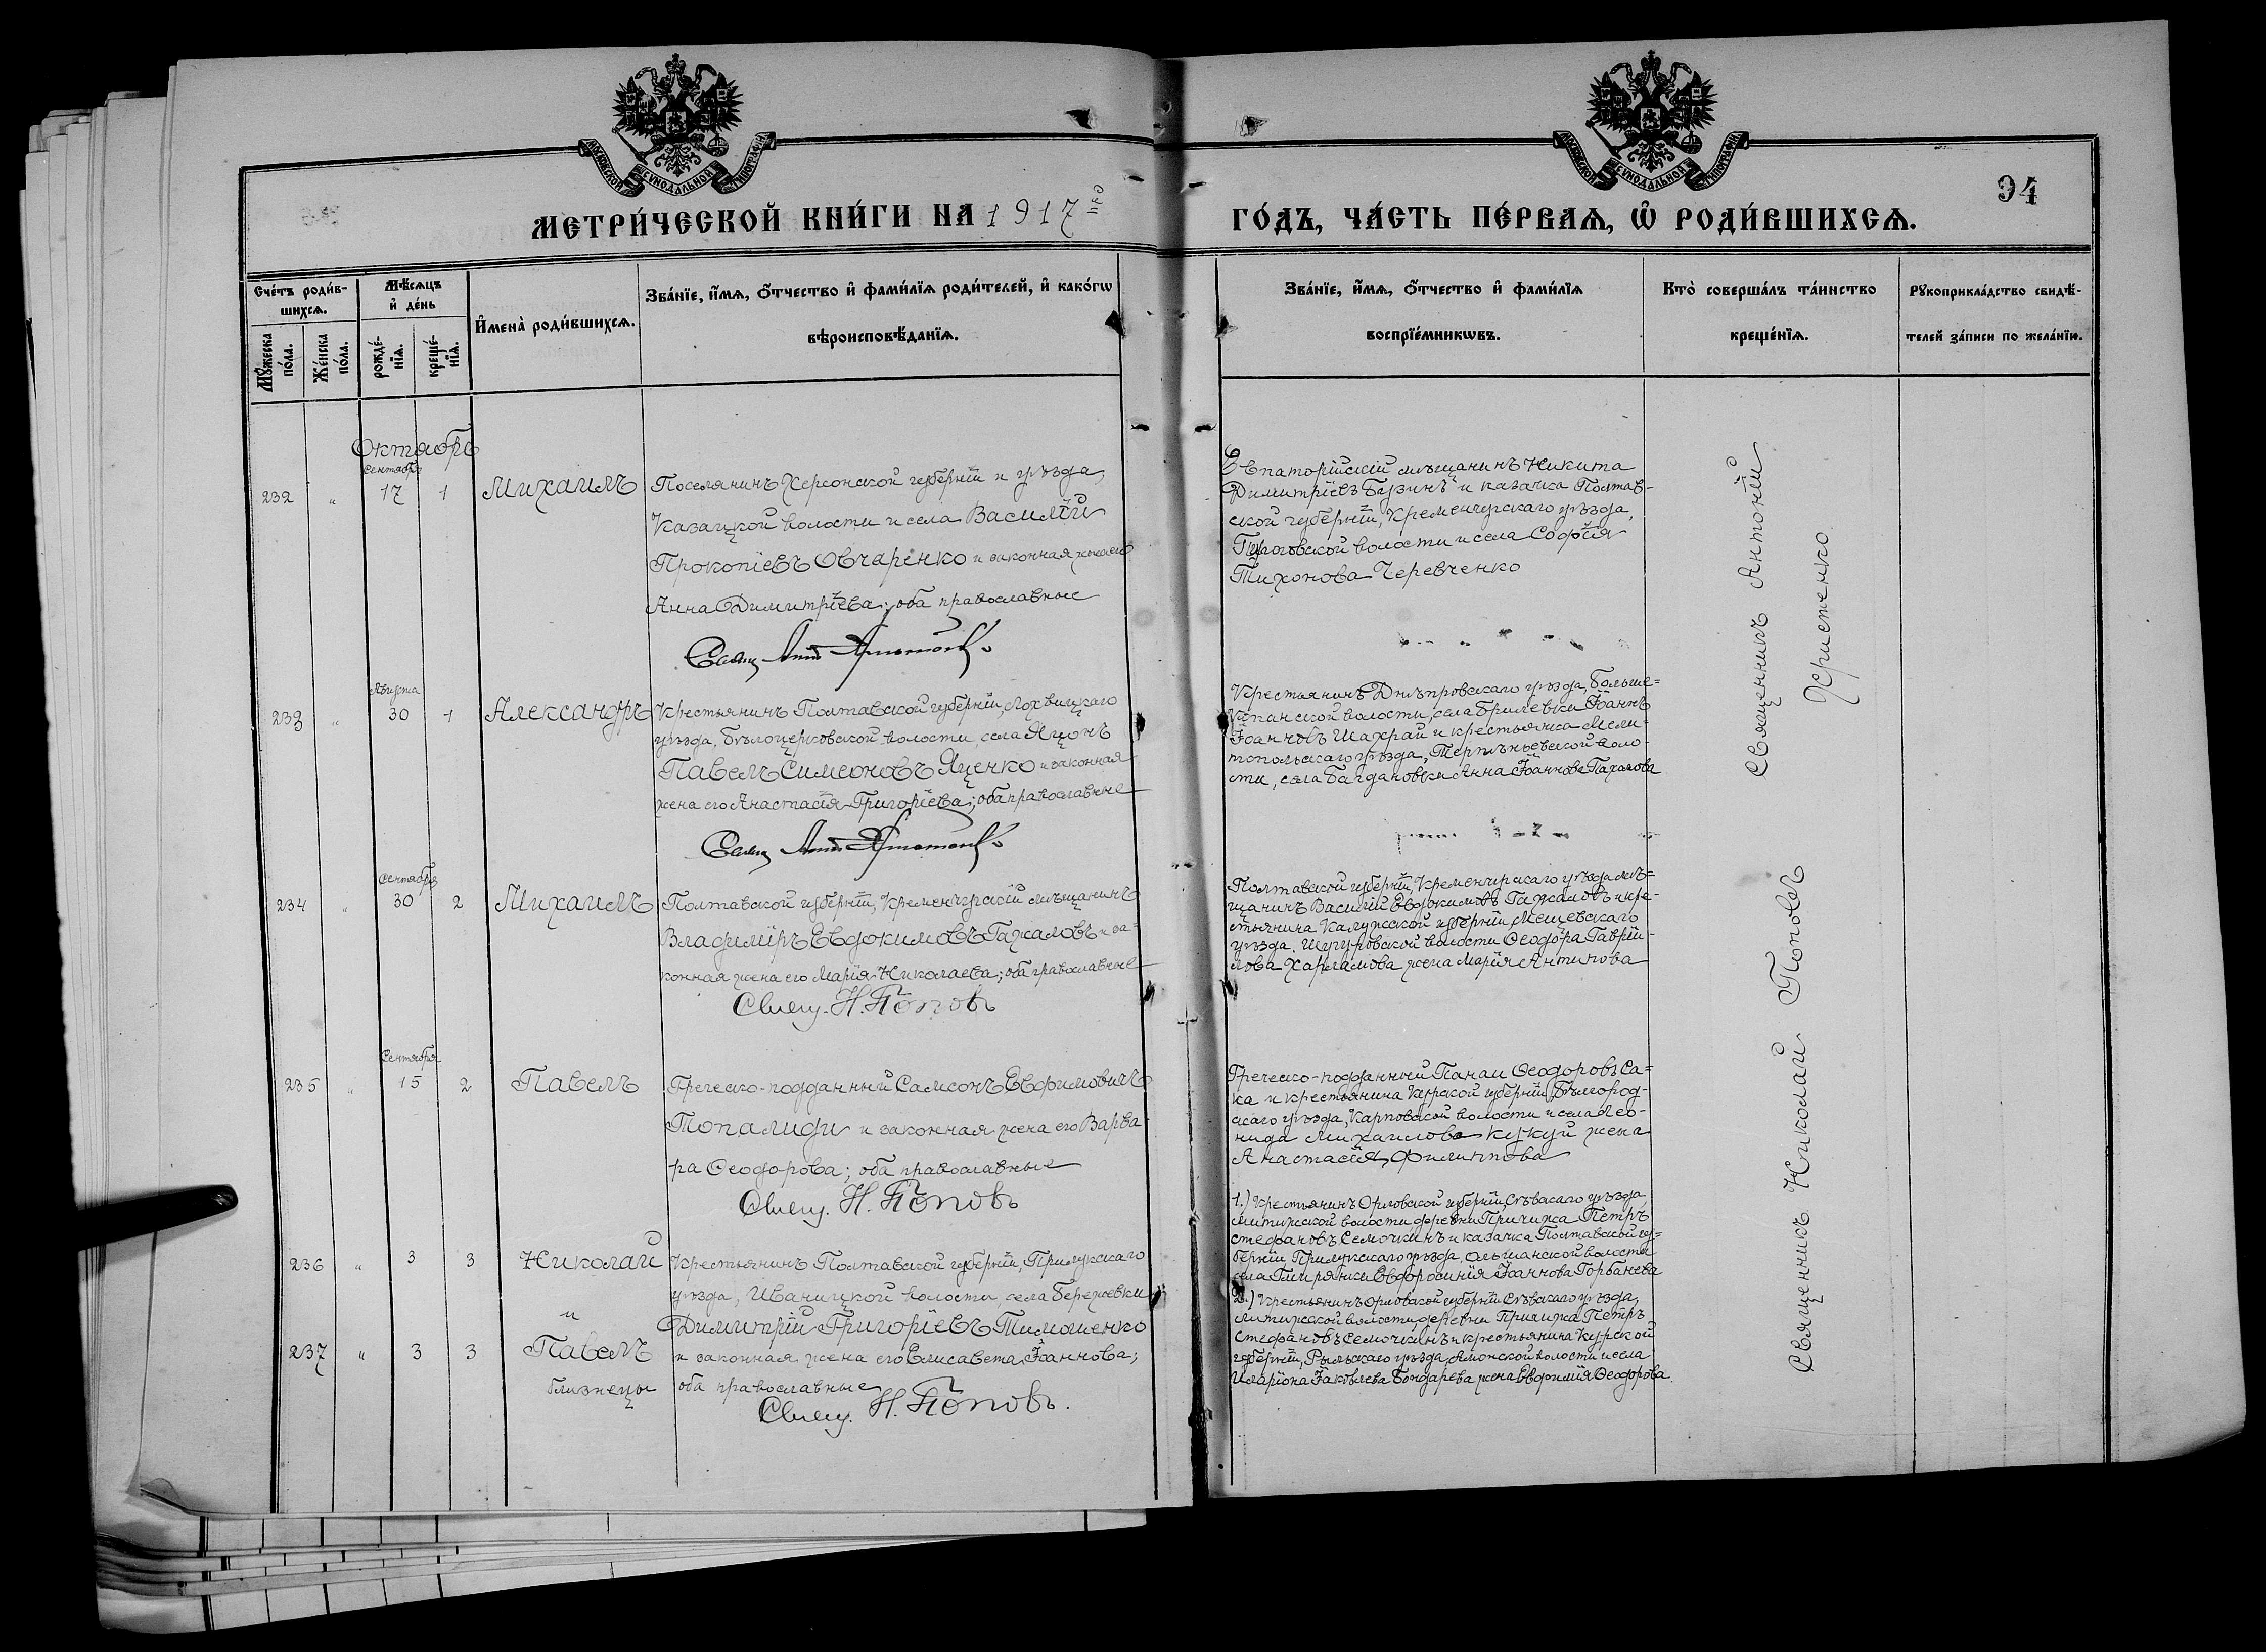 МОСКОВСКОЙ СѴНОДАЛЬНОЙ ТИПОГРАФІИ
МОСКОВСКОЙ СѴНОДАЛЬНОЙ ТИПОГРАФІИ
94
МЕТРИ́ЧЕСКОЙ КНИ́ГИ НА 1917 го
ГО́ДЪ, ЧА́СТЬ ПЕ́РВАѦ, Ѡ҆ РОДИ́ВШИХСѦ.
Сче́тъ роди́в-
шихсѧ.
Мꙋ́жеска по́ла.
Же́нска по́ла.
Мѣ́сѧцъ
и҆ де́нь
рожде́-
нїѧ.
креще́-
нїѧ.
И҆мена̀ роди́вшихсѧ.
Зва́нїе, и҆́мѧ, ѻ҆́тчество и҆ фами́лїѧ роди́телей, и҆ како́гѡ
вѣроисповѣ́данїѧ.
Зва́нїе, и҆́мѧ, ѻ҆́тчество и҆ фами́лїѧ
воспрїе́мникѡвъ.
Кто̀ соверша́лъ та́инство
креще́нїѧ.
Рꙋкоприкла́дство свидѣ́-
телей за́писи по жела́нїю.
Октябрь
232 " Сентября 17 1 Михаилъ
Поселянинъ Херсонской губерніи и уѣзда,
Казацкой волости и села Василій
Прокопіевъ Овчаренко и законная жена его
Анна Димитріева; оба православные
Свящ. Ант.
Евпаторійскій мѣщанинъ Никита
Димитріевъ и казачка Полтав-
ской губерніи, Кременчугскаго уѣзда,
волости и села Софія
Тихонова Черевченко
Священникъ Антоній
233 " Августа 30 1 Александръ
Крестьянинъ Полтавской губерніи, Лохвицкаго
уѣзда, Бѣлоцерковской волости, села Яцонъ
Павелъ Симеоновъ Яценко и законная
жена его Анастасія Григоріева; оба православные
Свящ. Ант.
Крестьянинъ Днѣпровскаго уѣзда, Больше-
Копанской волости, села Брилевки Іоаннъ
Іоанновъ Шахрай и крестьянка Мели-
топольскаго уѣзда, волo-
сти, села Богдановки Анна Іоаннова
234 " Сентября 30 2 Михаилъ
Полтавской губерніи, Кременчугскій мѣщанинъ
Владиміръ Евдокимовъ Гажаловъ и за-
конная жена его Марія Николаева; оба православные
Свящ. Н. Поповъ
Полтавской губерніи, Кременчугскаго уѣзда мѣ-
щанинъ Василій Евдокимовъ Гажаловъ и кре-
стьянина Калужской губерніи, Мещевскаго
уѣзда, волости Ѳеодора Гаврiи-
лова Харламова жена Марія Антипова
Священникъ Николай Поповъ
235 " Сентября 15 2 Павелъ
Греческо-подданный Самсонъ Евфимовичъ
Топалиди и законная жена его Варва-
ра Ѳеодорова; оба православные
Свящ. Н. Поповъ
Греческо-подданный Панаи Ѳеодоровъ Са-
ка и крестьянина Курской губерніи, Бѣлгород-
скаго уѣзда, Карповской волости и села Лео-
нида Михаилова Кукуй жена
Анастасія Филиппова
236 " 3 3 Николай
и
237 " 3 3 Павелъ
близнецы
Крестьянинъ Полтавской губерніи, Прилукскаго
уѣзда, Иваницкой волости, села Бережовки
Димитрій Григоріевъ Тимошенко
и законная жена его Елисавета Іоаннова;
оба православные
Свящ. Н. Поповъ.
1.) Крестьянинъ Орловской губерніи, Сѣвскаго уѣзда,
Литижской волости, деревни Прилижа Петръ
Стефановъ Семочкинъ и казачка Полтавской гу-
берніи, Прилукскаго уѣзда, Ольшанской волости
села Евфросинія Іоаннова Горбанева
2.) Крестьянинъ Орловской губерніи Сѣвскаго уѣзда,
Литижской волости, деревни Прилижа Петръ
Стефановъ Семочкинъ и крестьянина Курской
губерніи, Рыльскаго уѣзда, Амонской волости и села
Иларіона Іаковлева Бондарева жена Евфимія Ѳеодорова.